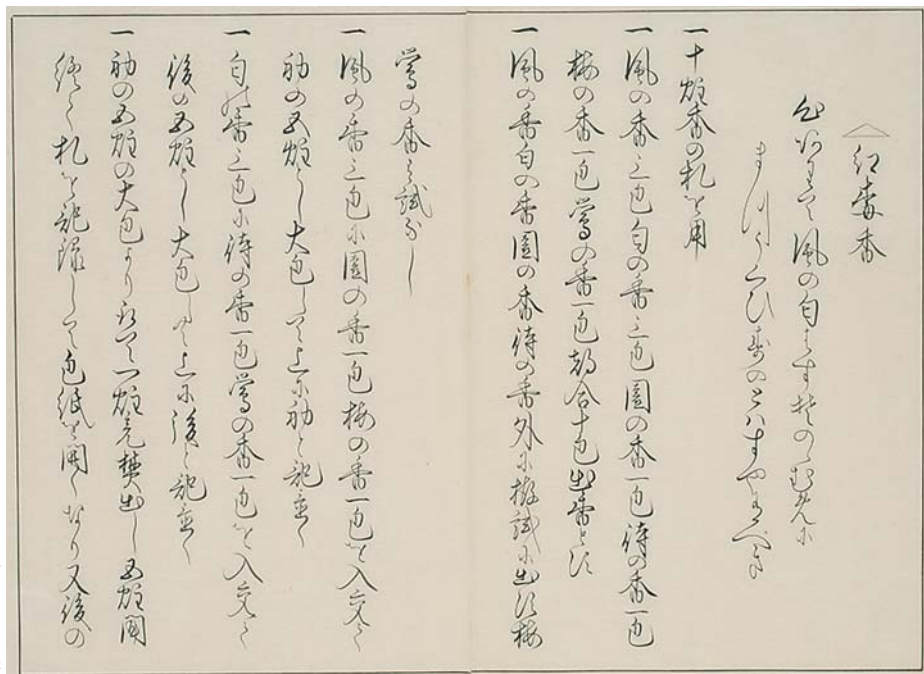 紅梅香
心あらは風の匂はすそのゝむめに
まつうくひすのとはすやあるへき
一十炷香の札を用
一風の香三包匂の香三包園の香一包待の香一包
梅の香一包鶯の香一包都合十包出香とす
一風の香匂の香園の香待の香外に拵試に出す梅
鶯の香は試なし
一風の香三包に園の香一包梅の香一包を入交て
初の五炷とし大包して上に初と記置く
一匂の香三包に待の香一包鶯の香一包を入交て
後の五炷とし大包して上に後と記置く
一初の五炷の大包より取て一炷充焚出し五炷聞
終て札を記録して包紙を開くなり又後の